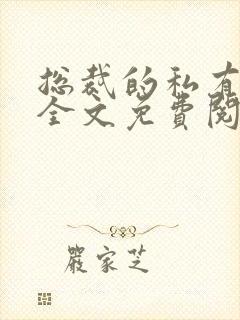 总裁的私有
全文免費閱
嚴家芝